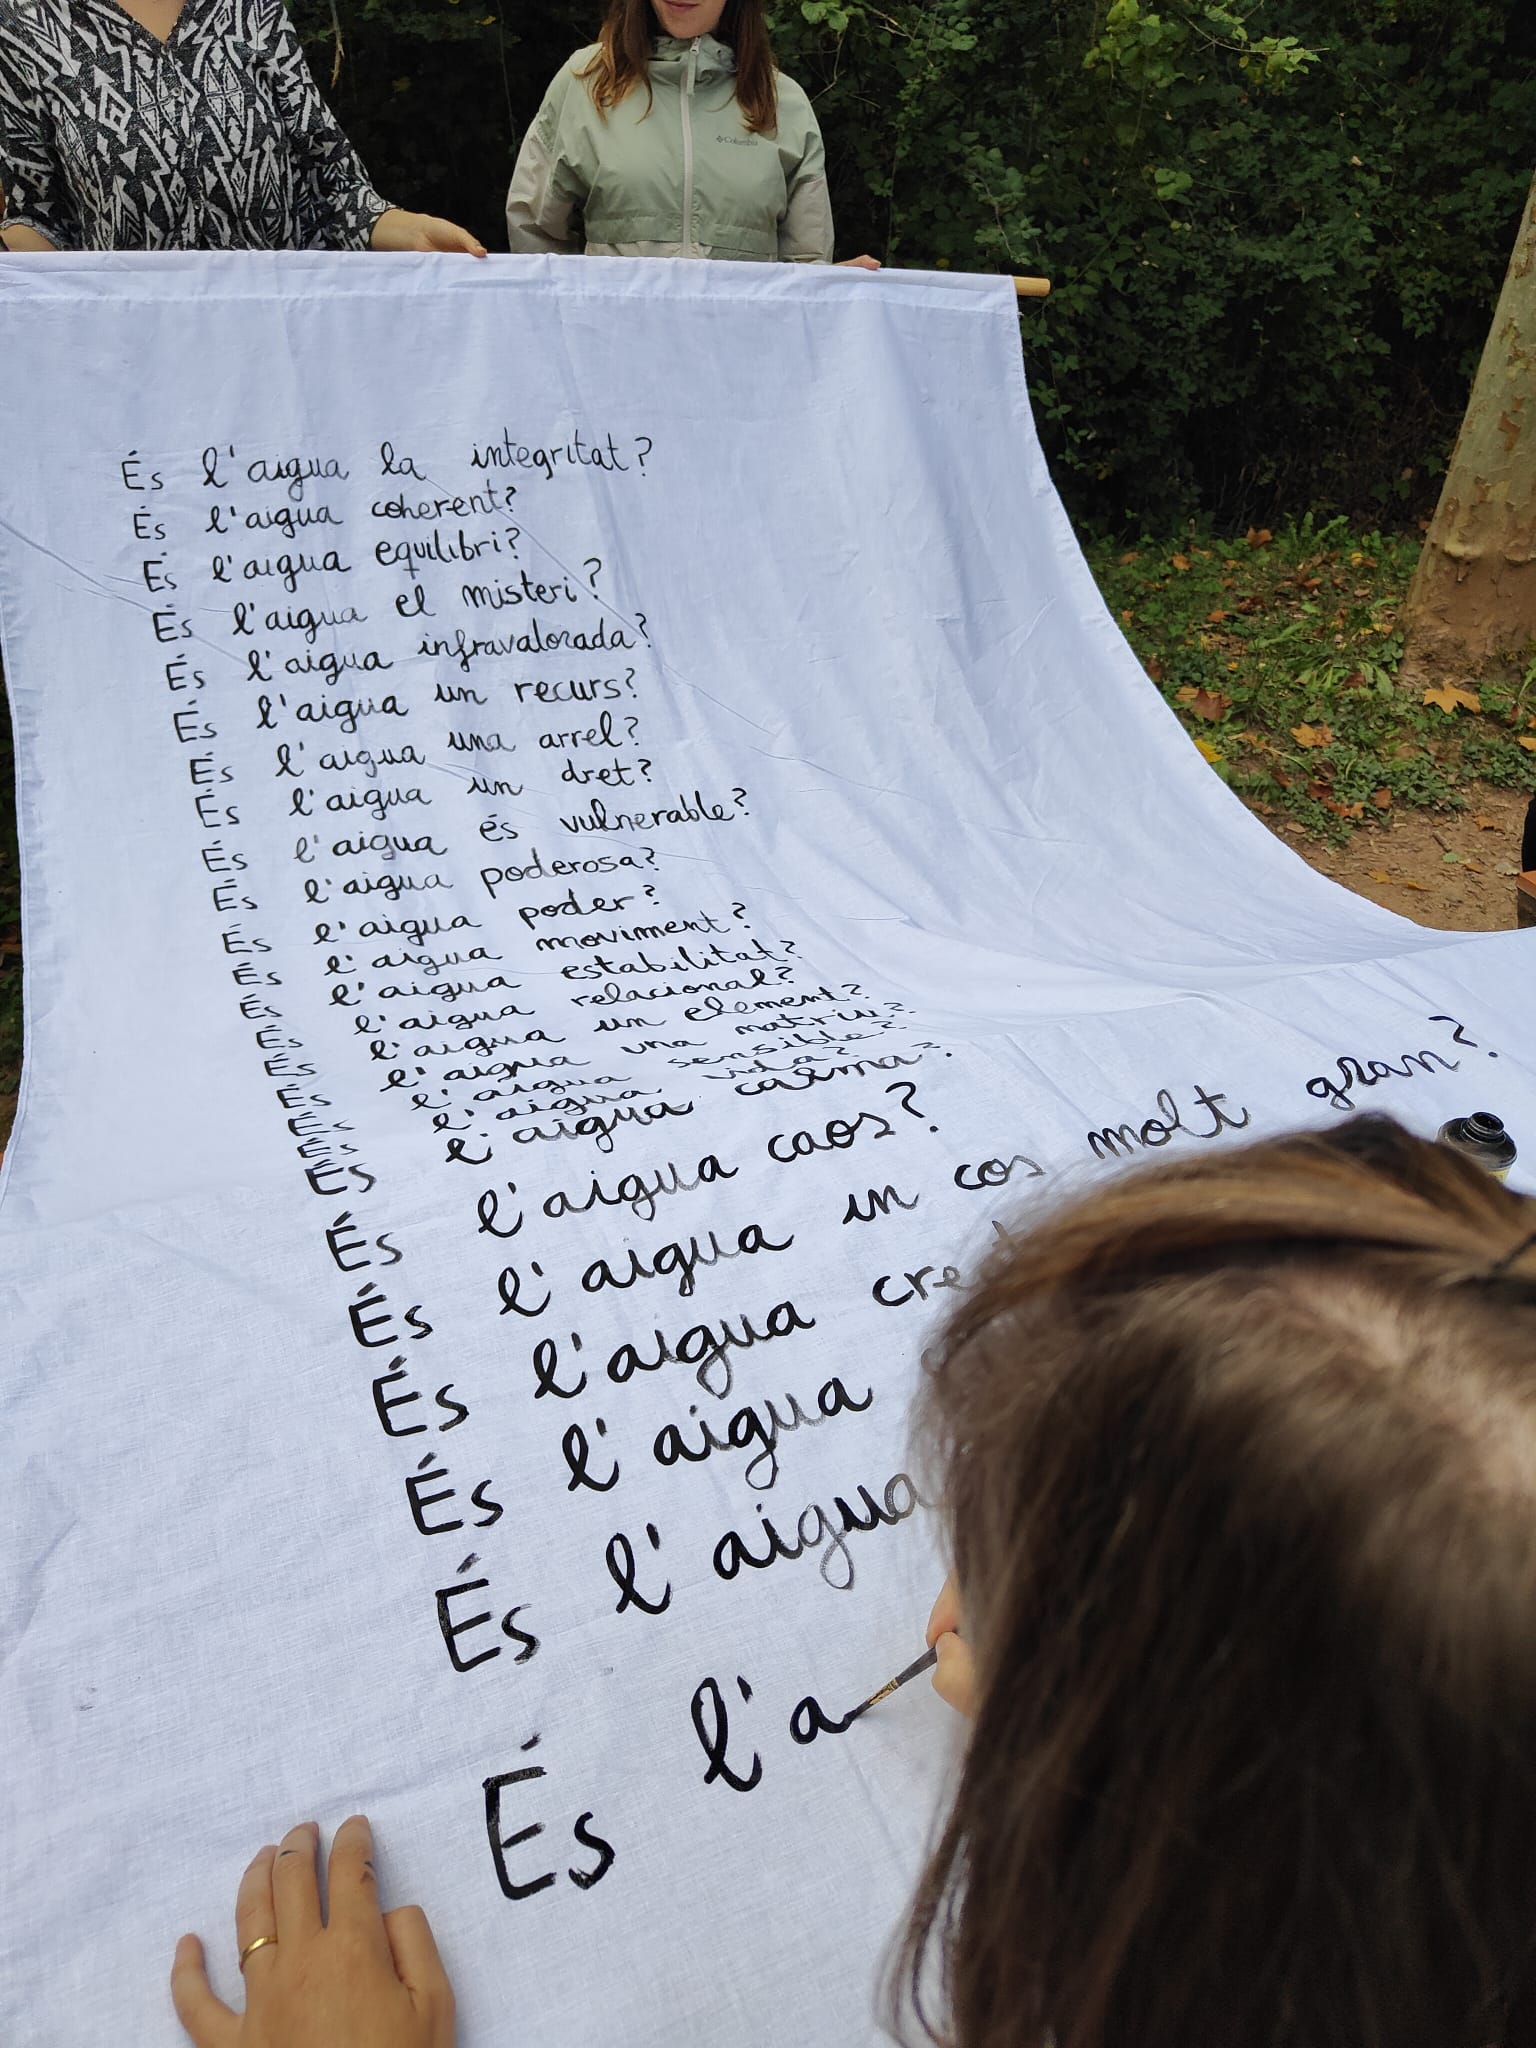 Columbia
És l'aigua la integritat?
És l'aigua coherent?
És l'aigua equilibri?
És l'aigua el misteri?
És l'aigua infravalorada?
És l'aigua un recurs?
És l'aigua una arrel?
És l'aigua un dret?
És l'aigua és vulnerable?
És l'aigua poderosa?
És l'aigua poder?
És l'aigua moviment?
És l'aigua estabilitat?
És l'aigua relacional?
És l'aigua un element?
És l'aigua una matriu?
És l'aigua sensible?
És l'aigua vida?
És l'aigua calma?
És l'aigua caos?
És l'aigua un cos molt gran?
És l'aigua
És l'aigua
És l'aigua
És l'a